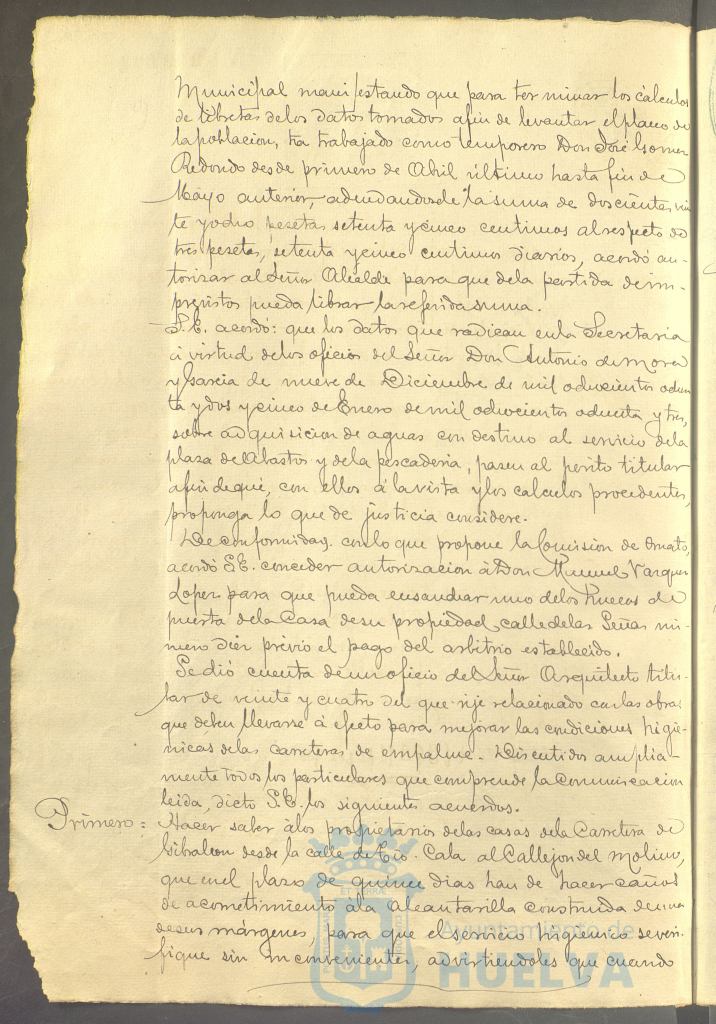 Municipal manifestando que para terminar los cálculos
de libretas de los datos tomados afin de levantar el plano de
la poblacion, ha trabajado como temporero Don José Gomez
Redondo desde primero de Abril último hasta fin de
Mayo anterior, adeudandosele la suma de doscientas vein
te y ocho pesetas setenta y cinco centimos al respecto de
tres pesetas, setenta y cinco centimos diarios, acordó au-
torizar al Señor Alcalde para que de la partida de im-
previstos pueda librar la referida suma.
S.E. acordó: que los datos que radican en la Secretaria
á virtud de los oficios del Señor Don Antonio de Mora
y Garcia de nueve de Diciembre de mil ochocientos ochen
ta y dos y cinco de Enero de mil ochocientos ochenta y tres,
sobre adquisicion de aguas con destino al servicio de la
plaza de Abastos y de la pescaderia, pasen al perito titular
afin de que, con ellos á la vista y los calculos procedentes,
proponga lo que de justicia considere.
De conformidad con lo que propone la Comision de Ornato,
acordó S.E. conceder autorizacion á Don Manuel Vazquez
Lopez para que pueda ensanchar uno de los huecos de
puerta de la Casa de su propiedad calle de las Señas nú-
mero diez previo el pago del arbitrio establecido.
Se dió cuenta de un oficio del Señor Arquitecto titu-
lar de veinte y cuatro del que rije relacionado con las obras
que deben llevarse á efecto para mejorar las condiciones higie-
nicas de las carreteras de empalme. Discutidos amplia-
mente todos los particulares que comprende la comunicacion
leida, dictó S.E. los siguientes acuerdos.
Primero: Hacer saber á los propietarios de las casas de la Carretera de
Gibraleon desde la calle de Tio Cala al Callejon del Molino,
que en el plazo de quince dias han de hacer caños
de acometimiento á la alcantarilla construida de una
de sus márgenes, para que el servicio higienico se veri-
fique sin inconvenientes, advirtiendoles que cuando
Ayuntamiento de
HUELVA